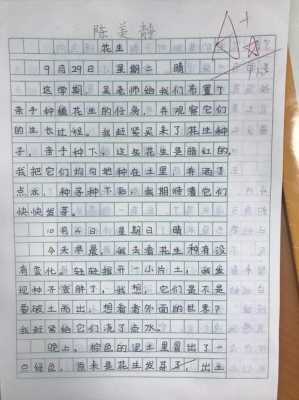 陈美静
花生
9月29日 星期二 晴
这学期，吴老师给我们布置了
亲手种植花生的任务，并观察它们
的生长过程。我赶紧买来了花生种
子，亲手种下，这些花生是暗红的，
我把它们均匀地种在土里，并洒了
点水，种子种下后，我期待着它们
快快发芽。
10月4日 星期日 晴
今天早晨，我去看花生种有没
有变化，轻轻掘开一小片土，我发
现种子变胖了，我想，它们是不是
要破土而出，想看看外面的世界？
我赶紧给它们浇了点水。
晚上，棕色的泥土里冒出了一
点绿色，原来是花生发芽了，出土